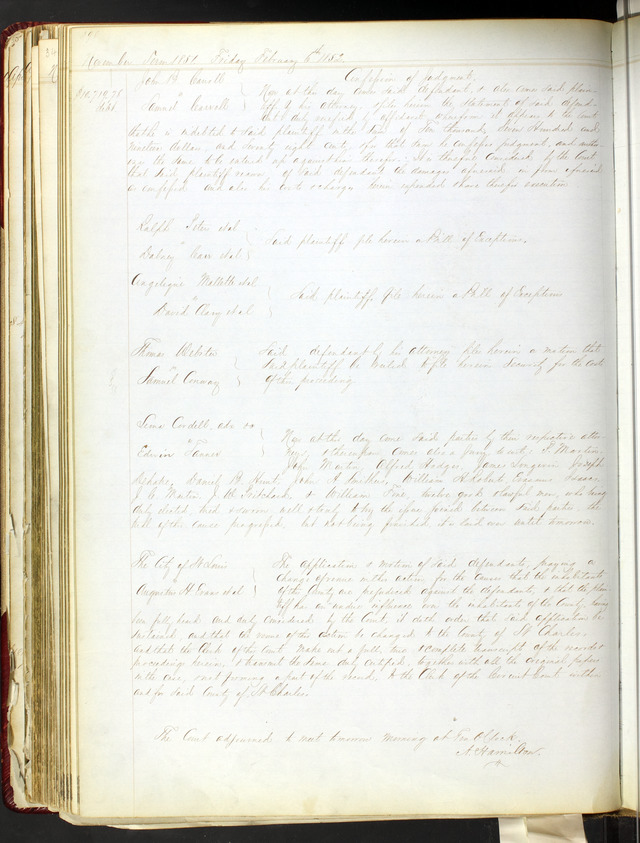 November Term 1851 Friday February 6th 1852
John B Carroll
Confession of judgment.
Samuel Caswell
Now at this day came said defendant, & also came said plain-
tiff by his attorney, & files herein the statement of said defend-
ant duly verified by affidavit, wherefrom it appears to the court
that he is indebted to said plaintiff in the sum of Ten thousand, seven hundred and
nineteen dollars, and seventy eight cents, for that sum he confesses judgment, and autho-
rizes the same to be entered up against him therefor; It is therefore Considered by the Court
that said plaintiff recover of said defendant the damages aforesaid in form aforesaid
so confessed and also his costs & charges herein expended & have therefor execution
Ralph Peter et al
vs
et al
Said plaintiff files herein a Bill of Exceptions.
Angelique et al
vs
David Clary et al
Said plaintiff files herein a Bill of Exceptions
Thomas Webster
vs
Samuel Conway
Said defendant by his attorney files herein a motion that
said plaintiff be required to file herein Security for the Costs
of this proceeding.
Cordell, adx
vs
Edwin Tanner
Now at this day come said parties by their respective attor-
neys, & thereupon comes also a jury, to wit,
John Martin, Alfred Hodges, James Joseph
Daniel B. Hunt, John A William A Isaac
J. C. Martin & William twelve good & lawful men, who being
duly elected, tried & sworn well & truly to try the issue joined between said parties, the
trial of the cause progressed, but not being finished it is laid over until tomorrow.
The City of St Louis
vs
Augustus H Evans et al
The application & motion of said defendants, praying a
change of venue in this action, for the causes that the inhabitants
of this County are prejudiced against the defendants, & that the plain-
tiff has an undue influence over the inhabitants of the County, having
been fully heard and duly considered by the Court, it doth order that said application be
sustained, and that the venue of this action be changed to the County of St Charles,
and that the Clerk of this court make out a full, true & complete transcript of the record &
proceedings herein, & transmit the same duly certified, together with all the original papers
in the case, & not forming a part of the record, to the Clerk of the Circuit Court within
and for said County of St Charles.
The Court adjourned to meet tomorrow morning at Ten O'Clock.
A. Hamilton.